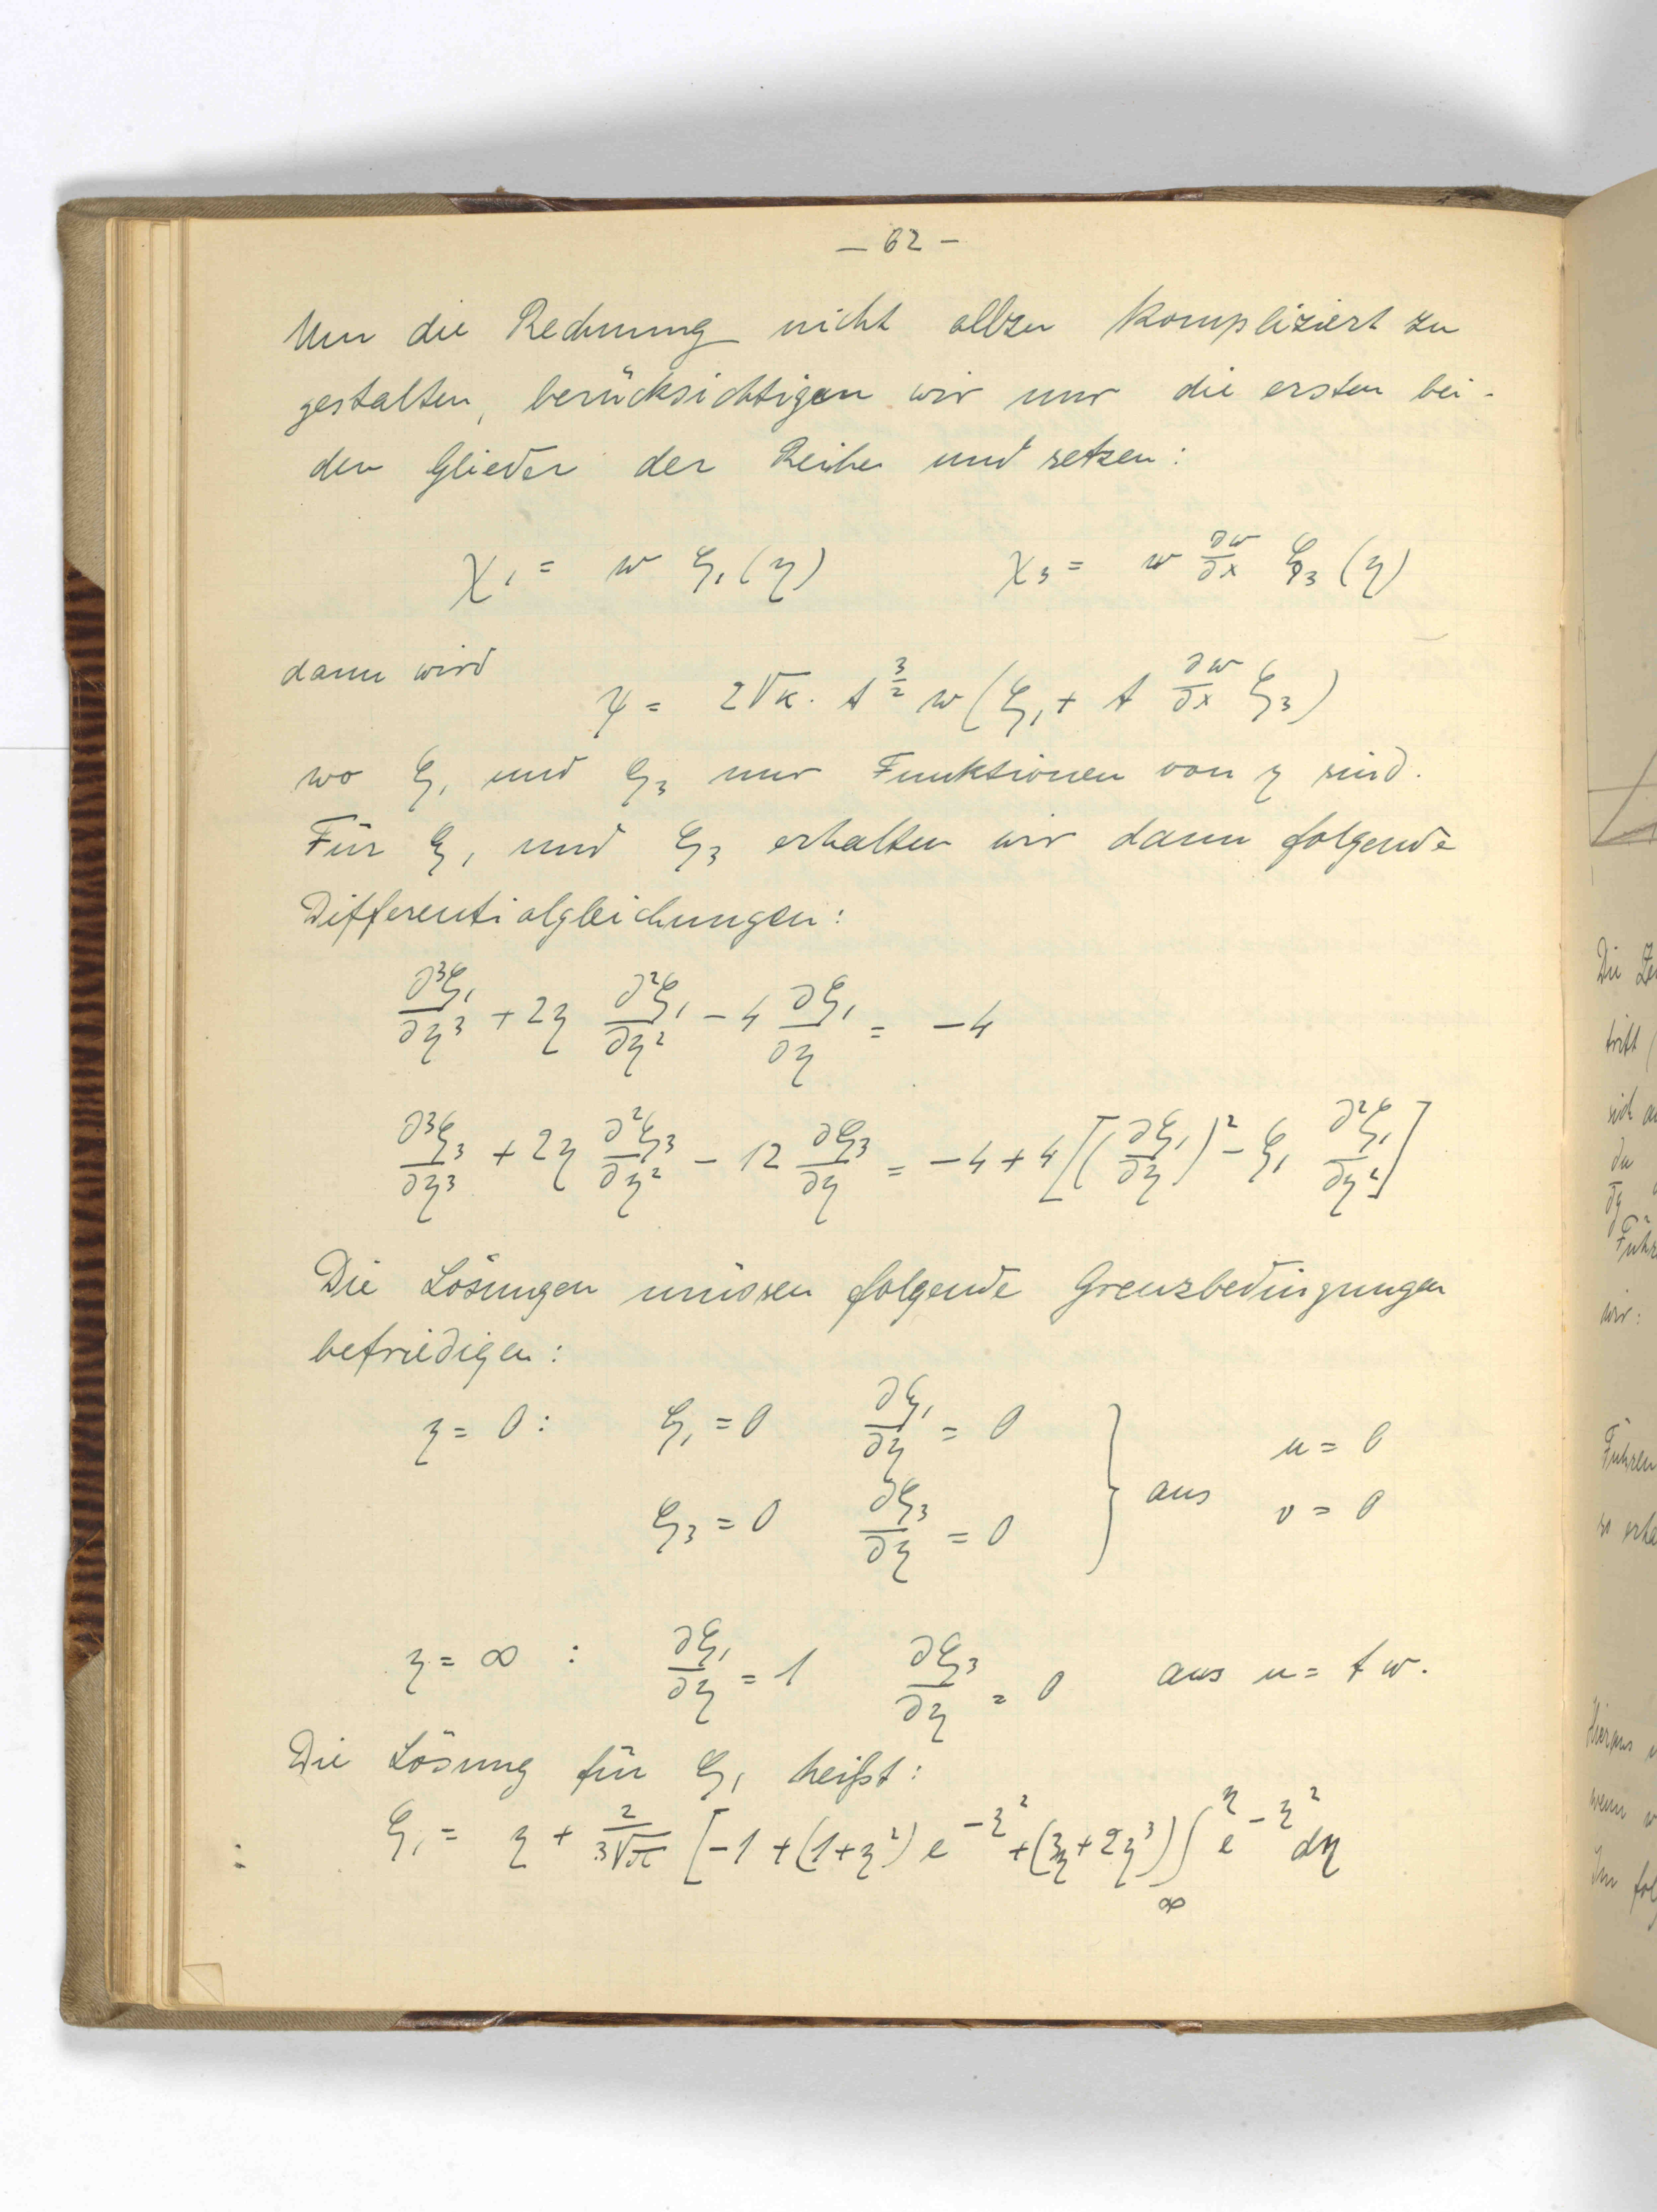 – 62 –
Um die Rechnung nicht allzu kompliziert zu
gestalten, berücksichtigen wir nur die ersten bei-
den Glieder der Reihe und setzen:
χ₁ = w ζ₁(η) χ₃ = w ∂w/∂x ζ₃(η)
dann wird
ψ = 2√κ · t^(3/2) w (ζ₁ + t ∂w/∂x ζ₃)
wo ζ₁ und ζ₃ nur Funktionen von η sind.
Für ζ₁ und ζ₃ erhalten wir dann folgende
Differentialgleichungen:
∂³ζ₁/∂η³ + 2η ∂²ζ₁/∂η² – 4 ∂ζ₁/∂η = –4
∂³ζ₃/∂η³ + 2η ∂²ζ₃/∂η² – 12 ∂ζ₃/∂η = –4 + 4[(∂ζ₁/∂η)² – ζ₁ ∂²ζ₁/∂η²]
Die Lösungen müssen folgende Grenzbedingungen
befriedigen:
η = 0: ζ₁ = 0 ∂ζ₁/∂η = 0 } aus u = 0
ζ₃ = 0 ∂ζ₃/∂η = 0 v = 0
η = ∞ : ∂ζ₁/∂η = 1 ∂ζ₃/∂η = 0 aus u = t w.
Die Lösung für ζ₁ heißt:
ζ₁ = η + 2/(3√π) [–1 + (1+η²) e^(–η²) + (3η + 2η³) ∫_∞^η e^(–η²) dη
Die
tritt
wir:
Führen
Hieraus
wenn
Im